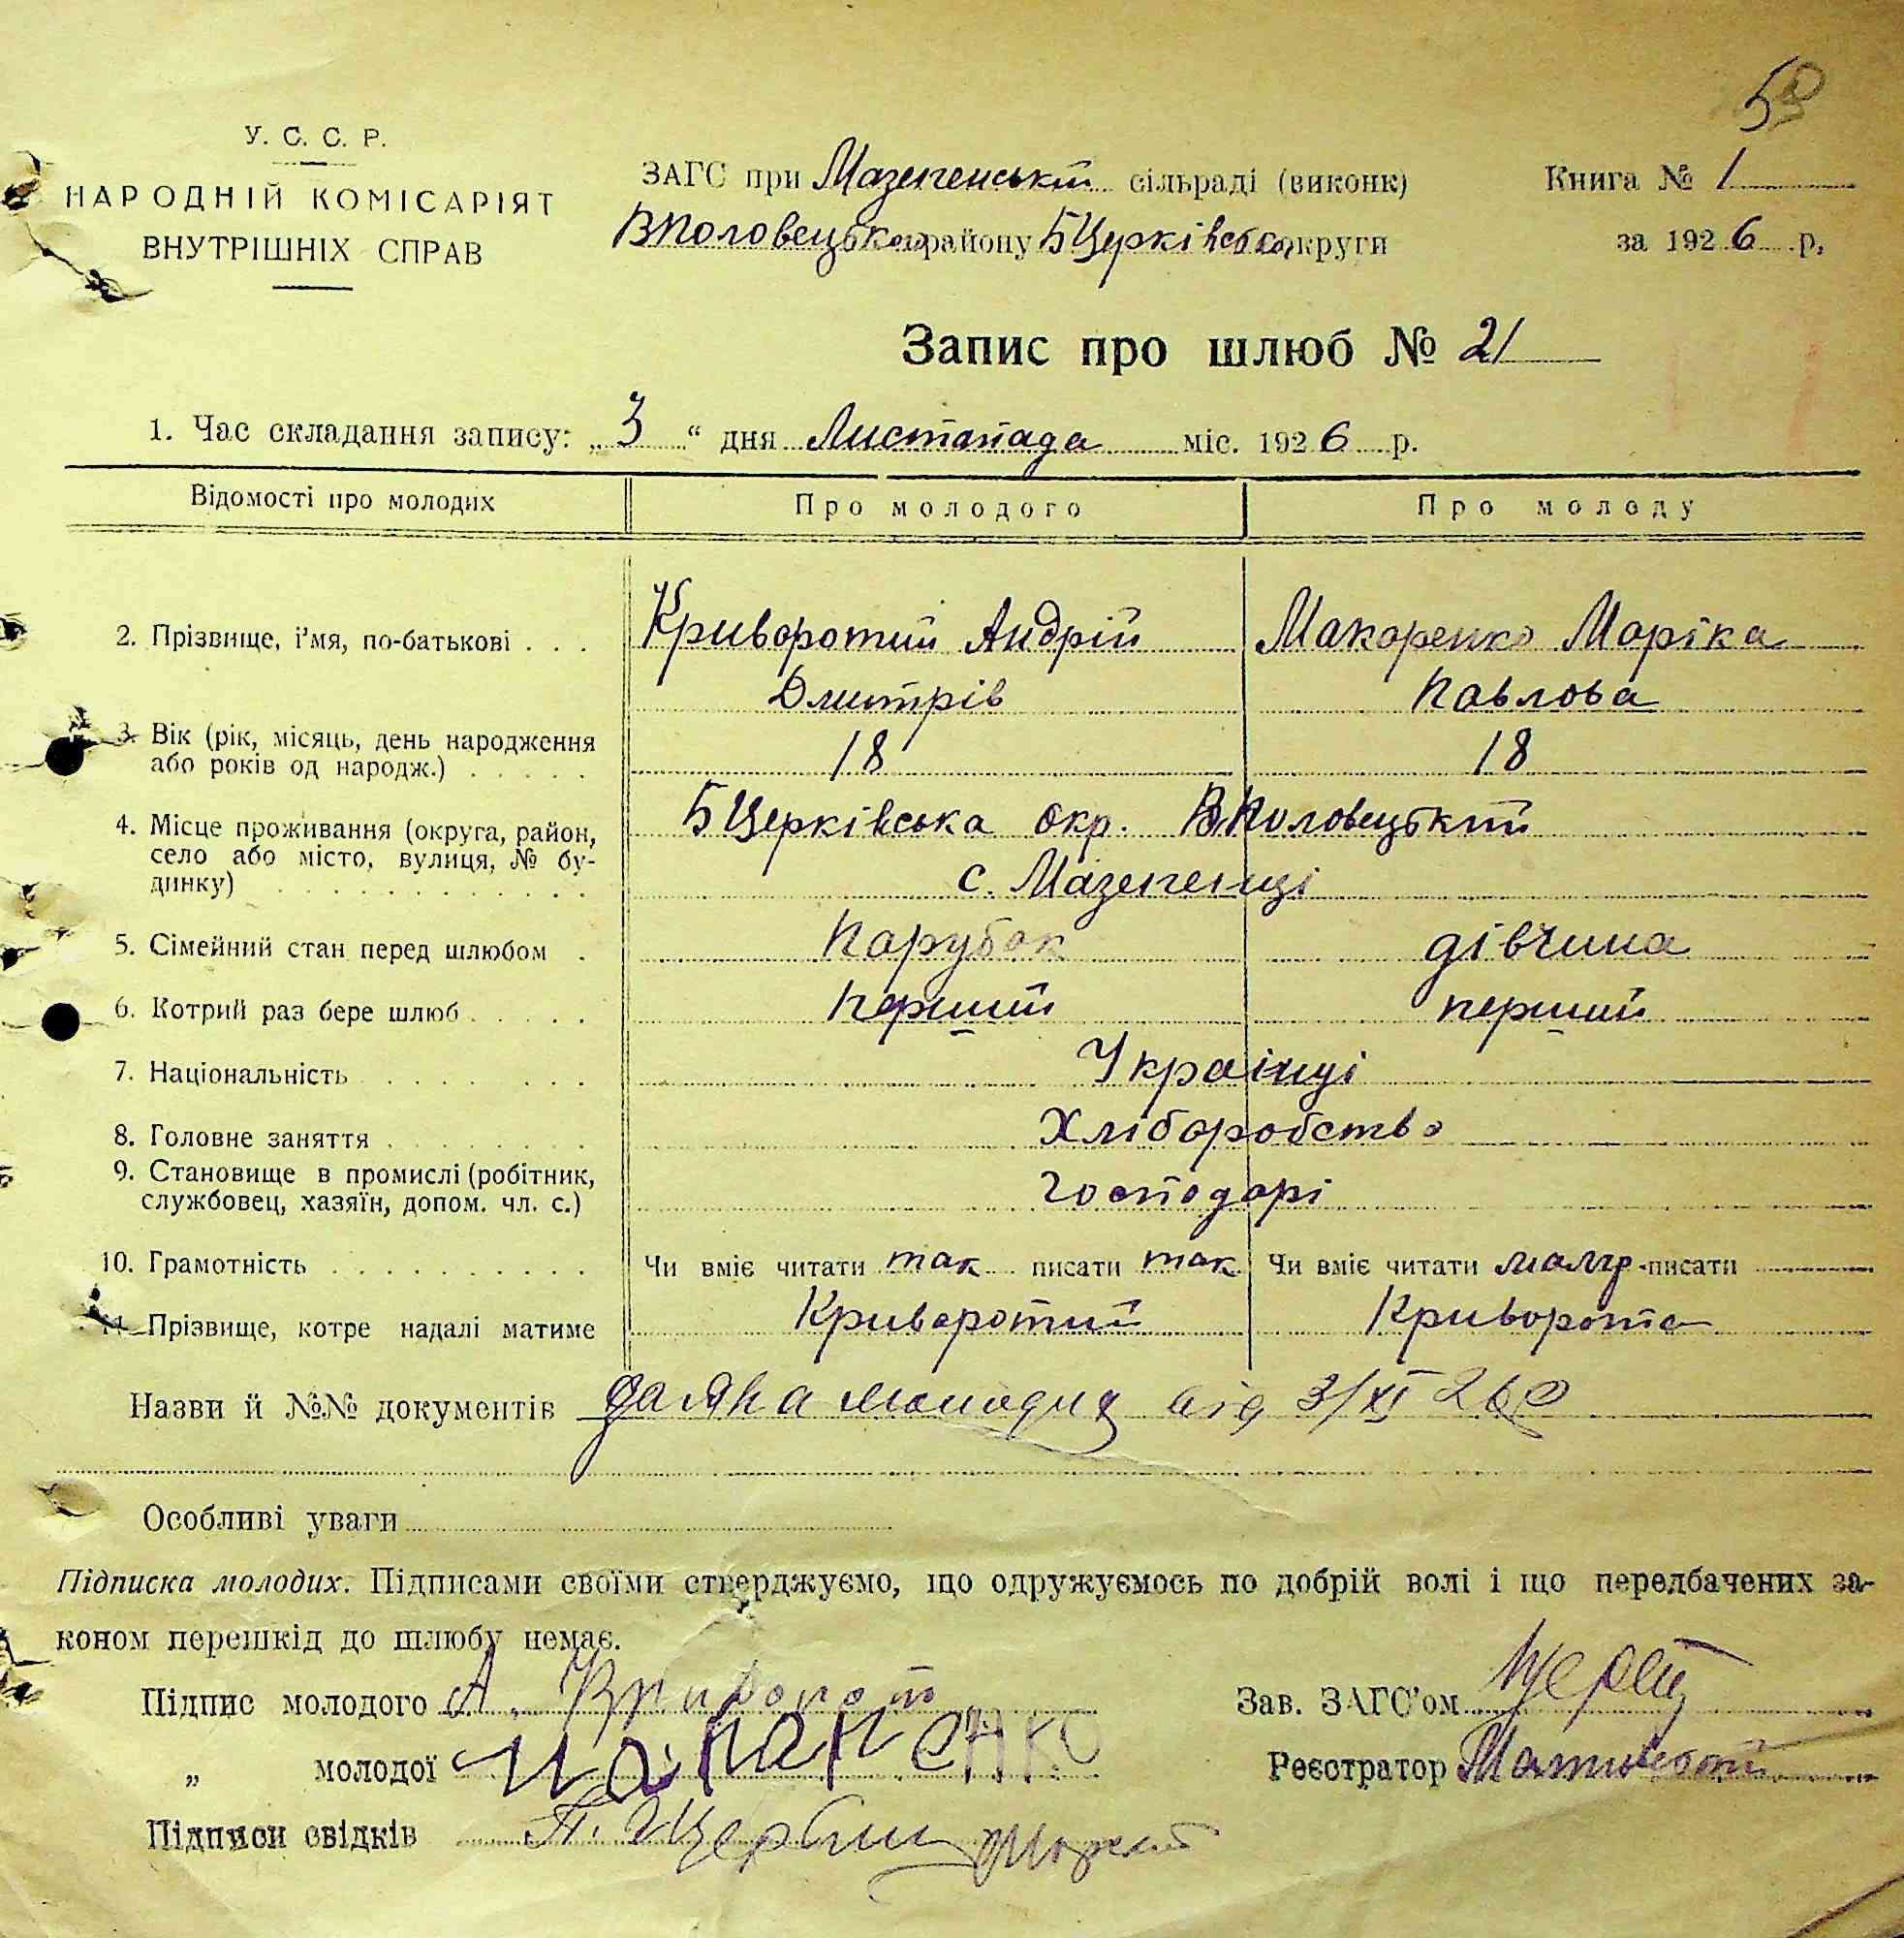 58
У. С. С. Р.
НАРОДНІЙ КОМІСАРІЯТ
ВНУТРІШНІХ СПРАВ
ЗАГС при Мазепенській сільраді (виконк)
ВПоловецького району БЦерківсько округи
Книга № 1
за 1926 р,
Запис про шлюб № 21
1. Час складання запису: „ 3 “ дня Листопада міс. 1926 р.
Відомості про молодих Про молодого Про молоду
2. Прізвище, і'мя, по-батькові . . . Криворотий Андрій Макоренко Моріка
Дмитрів Павлова
3. Вік (рік, місяць, день народження
або років од народж.) . . . . . 18 18
4. Місце проживання (округа, район, БЦерківська окр. В.Половецький
село або місто, вулиця, № бу-
динку) . . . . . . . . . . . . с. Мазепенці
5. Сімейний стан перед шлюбом . Парубок дівчина
6. Котрий раз бере шлюб . . . . . перший перший
7. Національність . . . . . . . . Українці
8. Головне заняття . . . . . . . . Хліборобство
9. Становище в промислі (робітник,
службовец, хазяїн, допом. чл. с.) Господарі
10. Грамотність . . . . . . . . . . Чи вміє читати так писати так Чи вміє читати писати
11. Прізвище, котре надалі матиме Криворотий Криворота
Назви й №№ документів від 3/XI 26
Особливі уваги
Підписка молодих. Підписами своїми стверджуємо, що одружуємось по добрій волі і що передбачених за-
коном перешкід до шлюбу немає.
Підпис молодого А. Криворот
Зав. ЗАГС'ом
„ молодої
Реєстратор
Підписи свідків П. Щербин